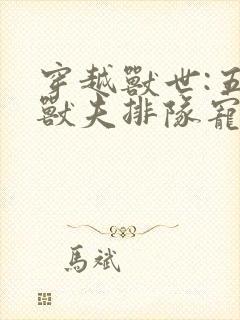 穿越獸世:五
獸夫排隊寵
馬斌